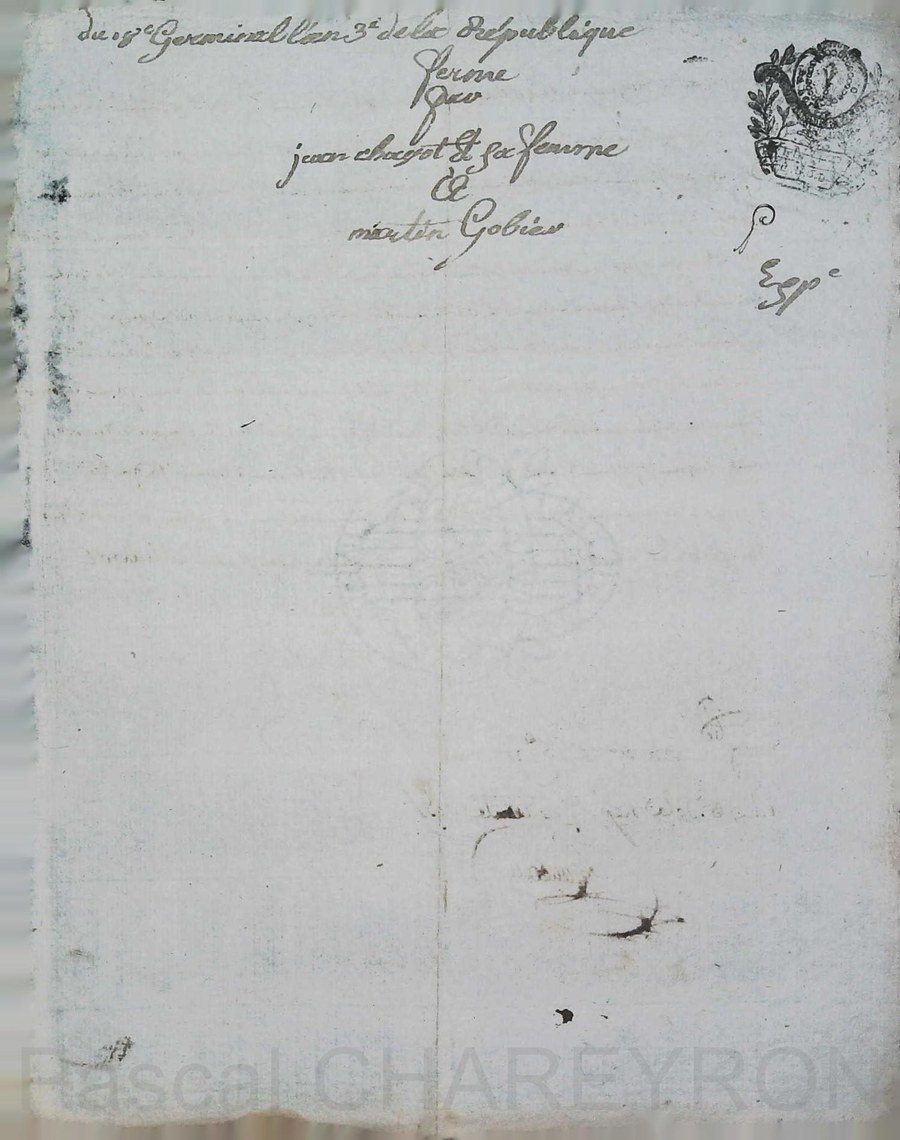 du 18e Germinal l'an 3e de la Republique
ferme
par
jean chayot & sa femme
&
martin Gobier
Expe
Pascal CHAREYRON